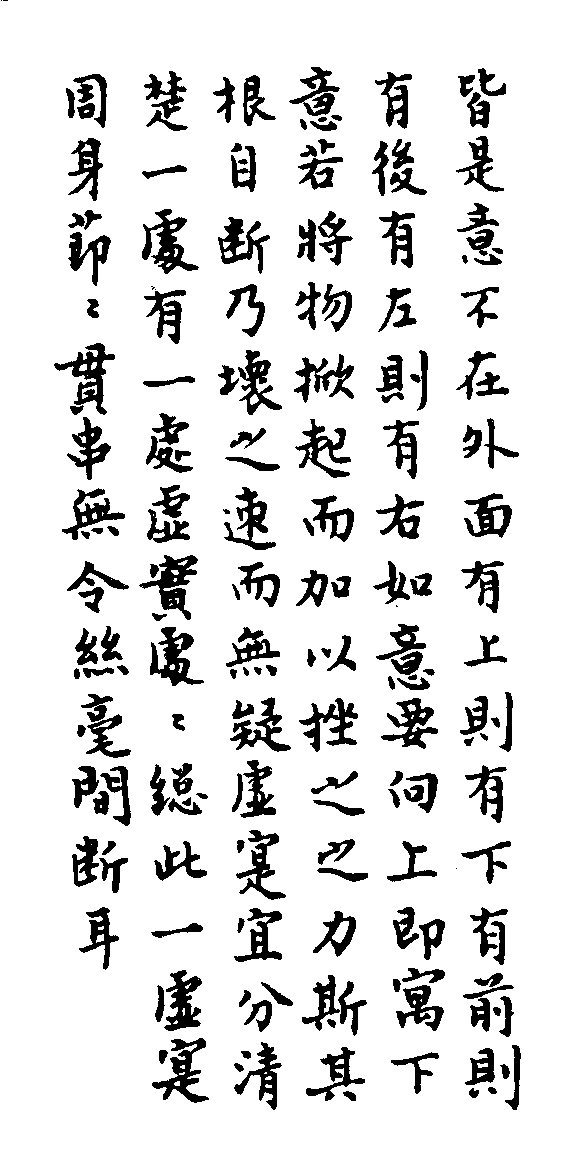 皆是意不在外面有上則有下有前則
有後有左則有右如意要向上即寓下
意若將物掀起而加以挫之之力斯其
根自断乃壞之速而無疑虛寔宜分清
楚一處有一處虛實處〻總此一虛寔
周身節〻貫串無令絲毫間断耳